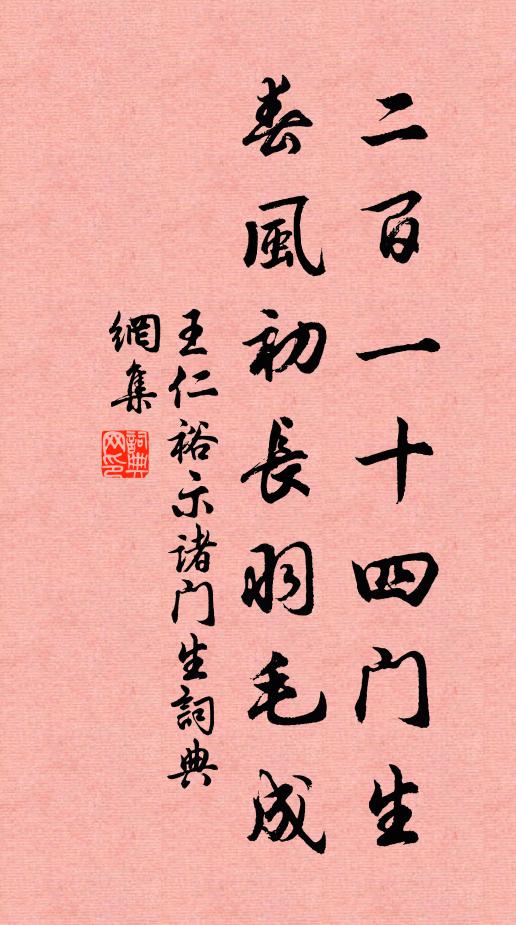 二百一十四门生
春風初長羽毛成
王仁裕示诸门生詞典
網集
詞典
网印